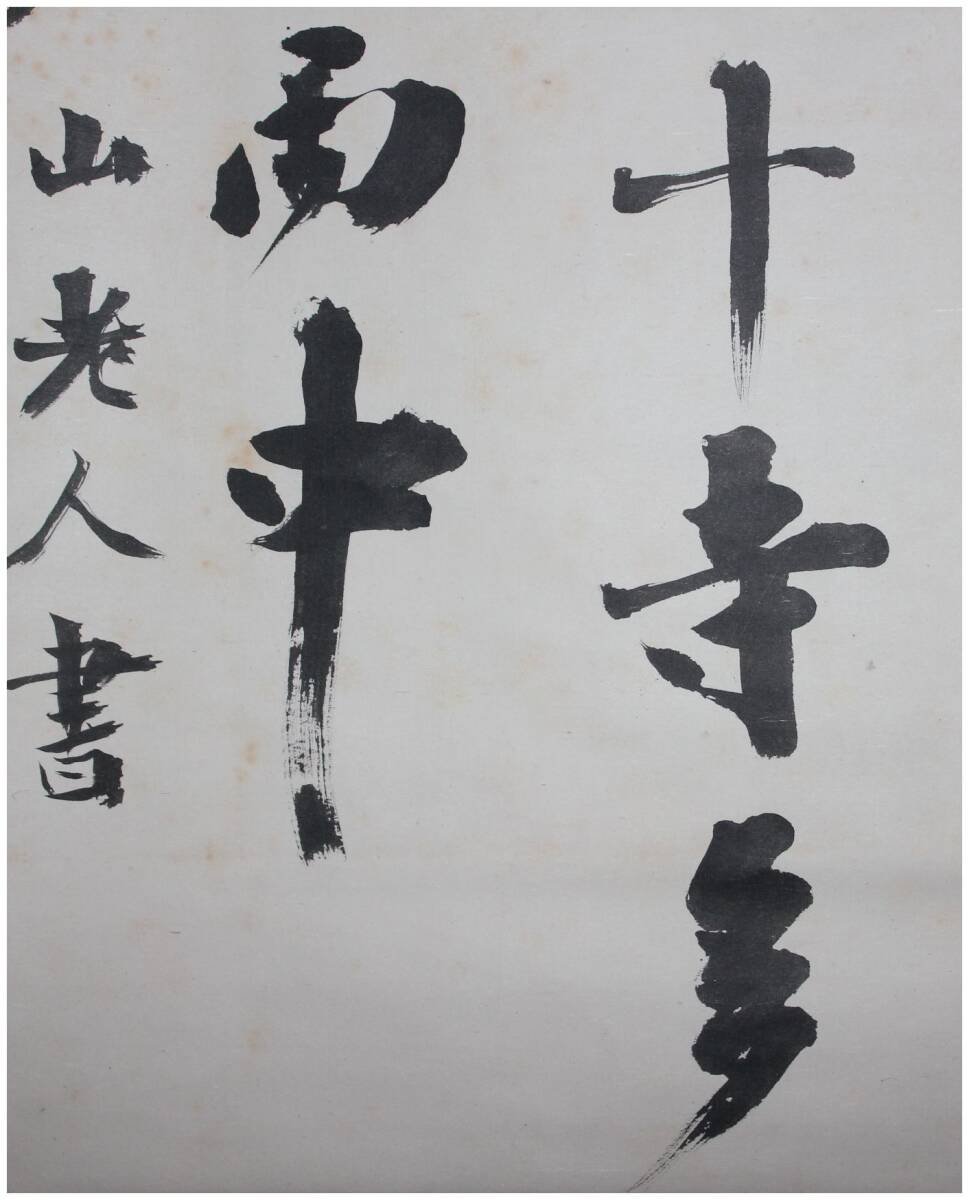 十寺多
雨中
山老人書